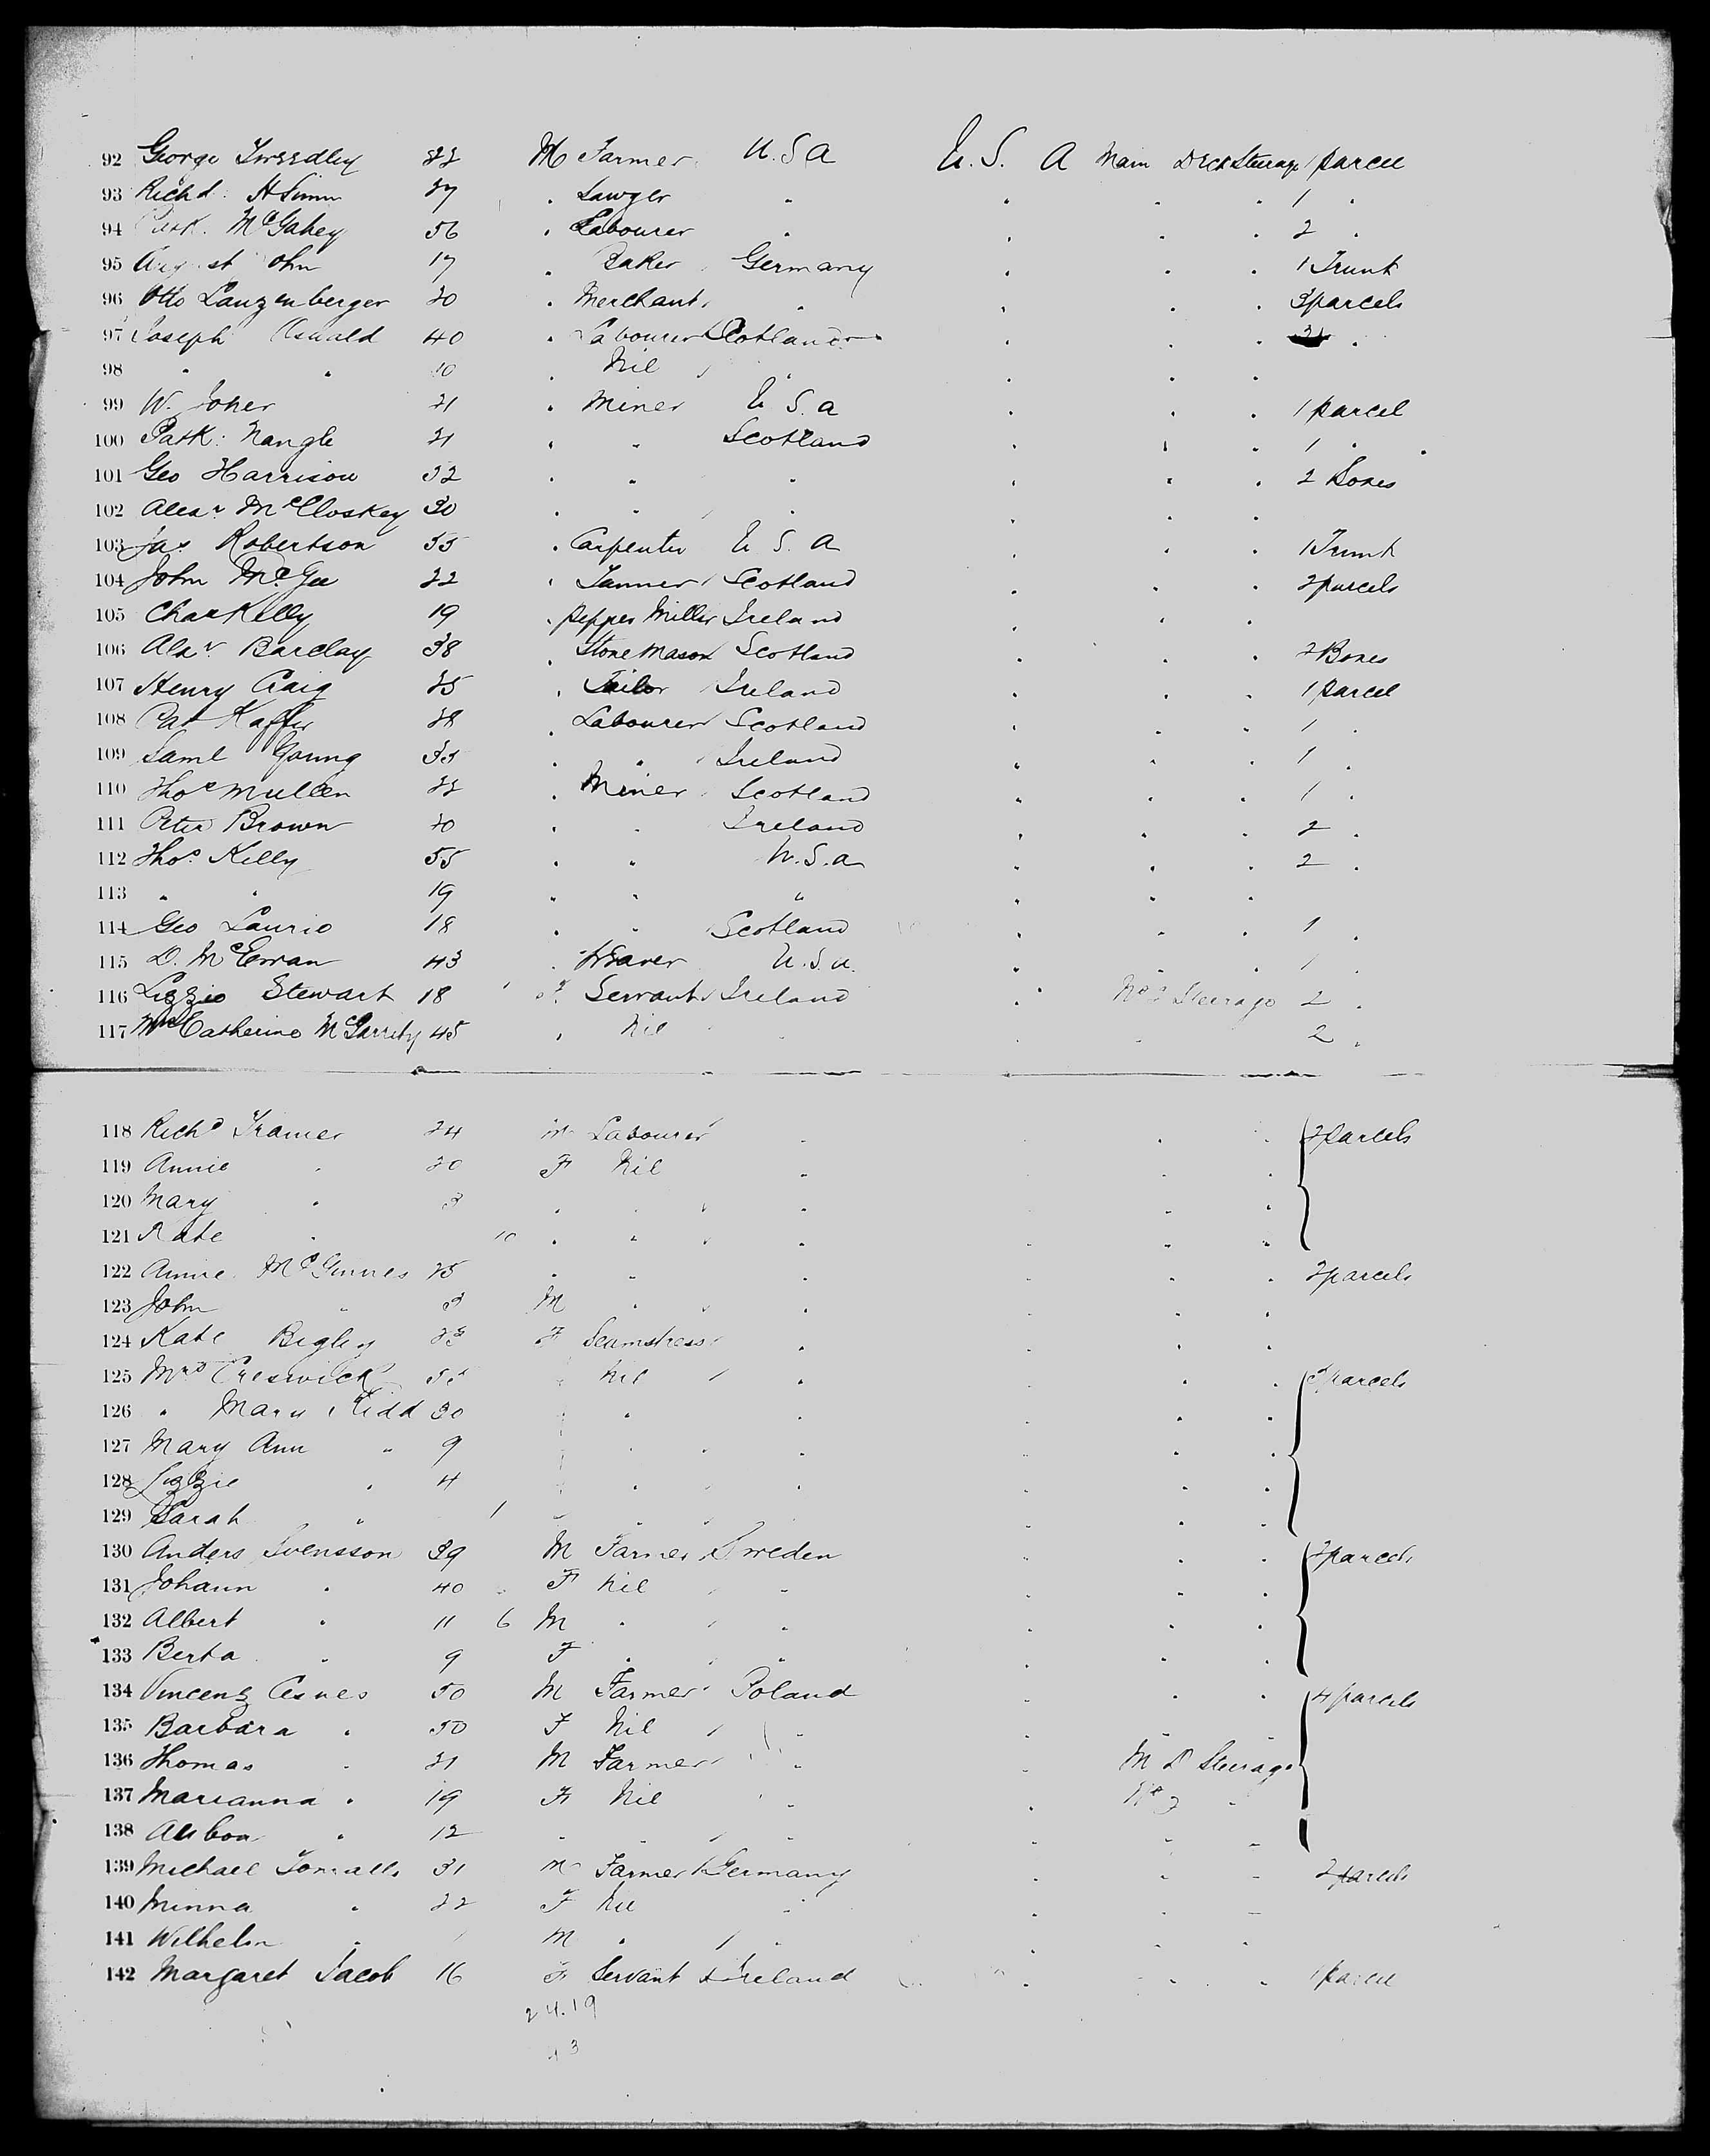 92 George Tweedley M Farmer U.S.A U. S. A Main Deck Steerage 1 parcel
93 Richd: 27 " Lawyer " " " " 1 "
94 McGahey 56 " Labourer " " " " 2 "
95 August Ohm 17 " Baker Germany " " " 1 Trunk
96 Otto Lanzenberger 20 " Merchant " " " " 3 parcels
97 Joseph Oswald 40 " Labourer Scotland " " "
98 " " 10 " Nil " " " "
99 W. Joner 21 " Miner U S. A " " " 1 parcel
100 Patk: Nangle 21 " " Scotland " " " 1 "
101 Geo Harrison 32 " " " " " " 2 Boxes
102 Alexr McCloskey 30 " " " " " "
103 Jas Robertson 55 " Carpenter U. S. A " " " 1 Trunk
104 John McGee 22 " Tanner Scotland " " " 2 parcels
105 Chas Kelly 19 " Pepper Miller Ireland " " "
106 Alexr Barclay 38 " Stone Mason Scotland " " " 2 Boxes
107 Henry Craig 25 " Tailor Ireland " " " 1 parcel
108 Pat 28 " Labourer Scotland " " " 1 "
109 Saml Young 35 " " Ireland " " " 1 "
110 Thos Mullen 22 " Miner Scotland " " " 1 "
111 Peter Brown 20 " " Ireland " " " 2 "
112 Thos Kelly 55 " " U.S.A " " " 2 "
113 " " 19 " " " " " "
114 Geo Laurie 18 " " Scotland " " " 1 "
115 D. McEwan 43 " Weaver U.S.A. " " " 1 "
116 Lizzie Stewart 18 F Servant Ireland " No 2 Steerage 2 "
117 Mrs Catherine McGarrity 45 " Nil " " " 2 "
118 Richd Tramer 24 M Labourer " " " " 2 parcels
119 Annie " 20 F Nil " " " "
120 Mary " 3 " " " " " "
121 Kate " 10 " " " " " "
122 Annie McGinnes 25 " " " " " " 2 parcels
123 John " 3 M " " " " "
124 Kate Bigley 23 F Seamstress " " " "
125 Mrs Creswick 55 " Nil " " " " parcels
126 " Mary Kidd 30 " " " " " "
127 Mary Ann " 9 " " " " " "
128 Lizzie " 4 " " " " " "
129 Sarah " 1 " " " " " "
130 Anders Svensson 39 M Farmer Sweden " " " 2 parcels
131 Johann " 40 F Nil " " " "
132 Albert " 11 6 M " " " " "
133 Berta " 9 F " " " " "
134 Vincenz 50 M Farmer Poland " " " 4 parcels
135 Barbara " 50 F Nil " " " "
136 Thomas " 21 M Farmer " " M D Steerage
137 Marianna " 19 F Nil " " No 2 "
138 " 12 " " " " " "
139 Michael 31 M Farmer Germany " " " 2 parcels
140 Minna " 22 F Nil " " " "
141 Wilhelm " M " " " " "
142 Margaret Jacob 16 F Servant Ireland " " " 1 parcel
24.19